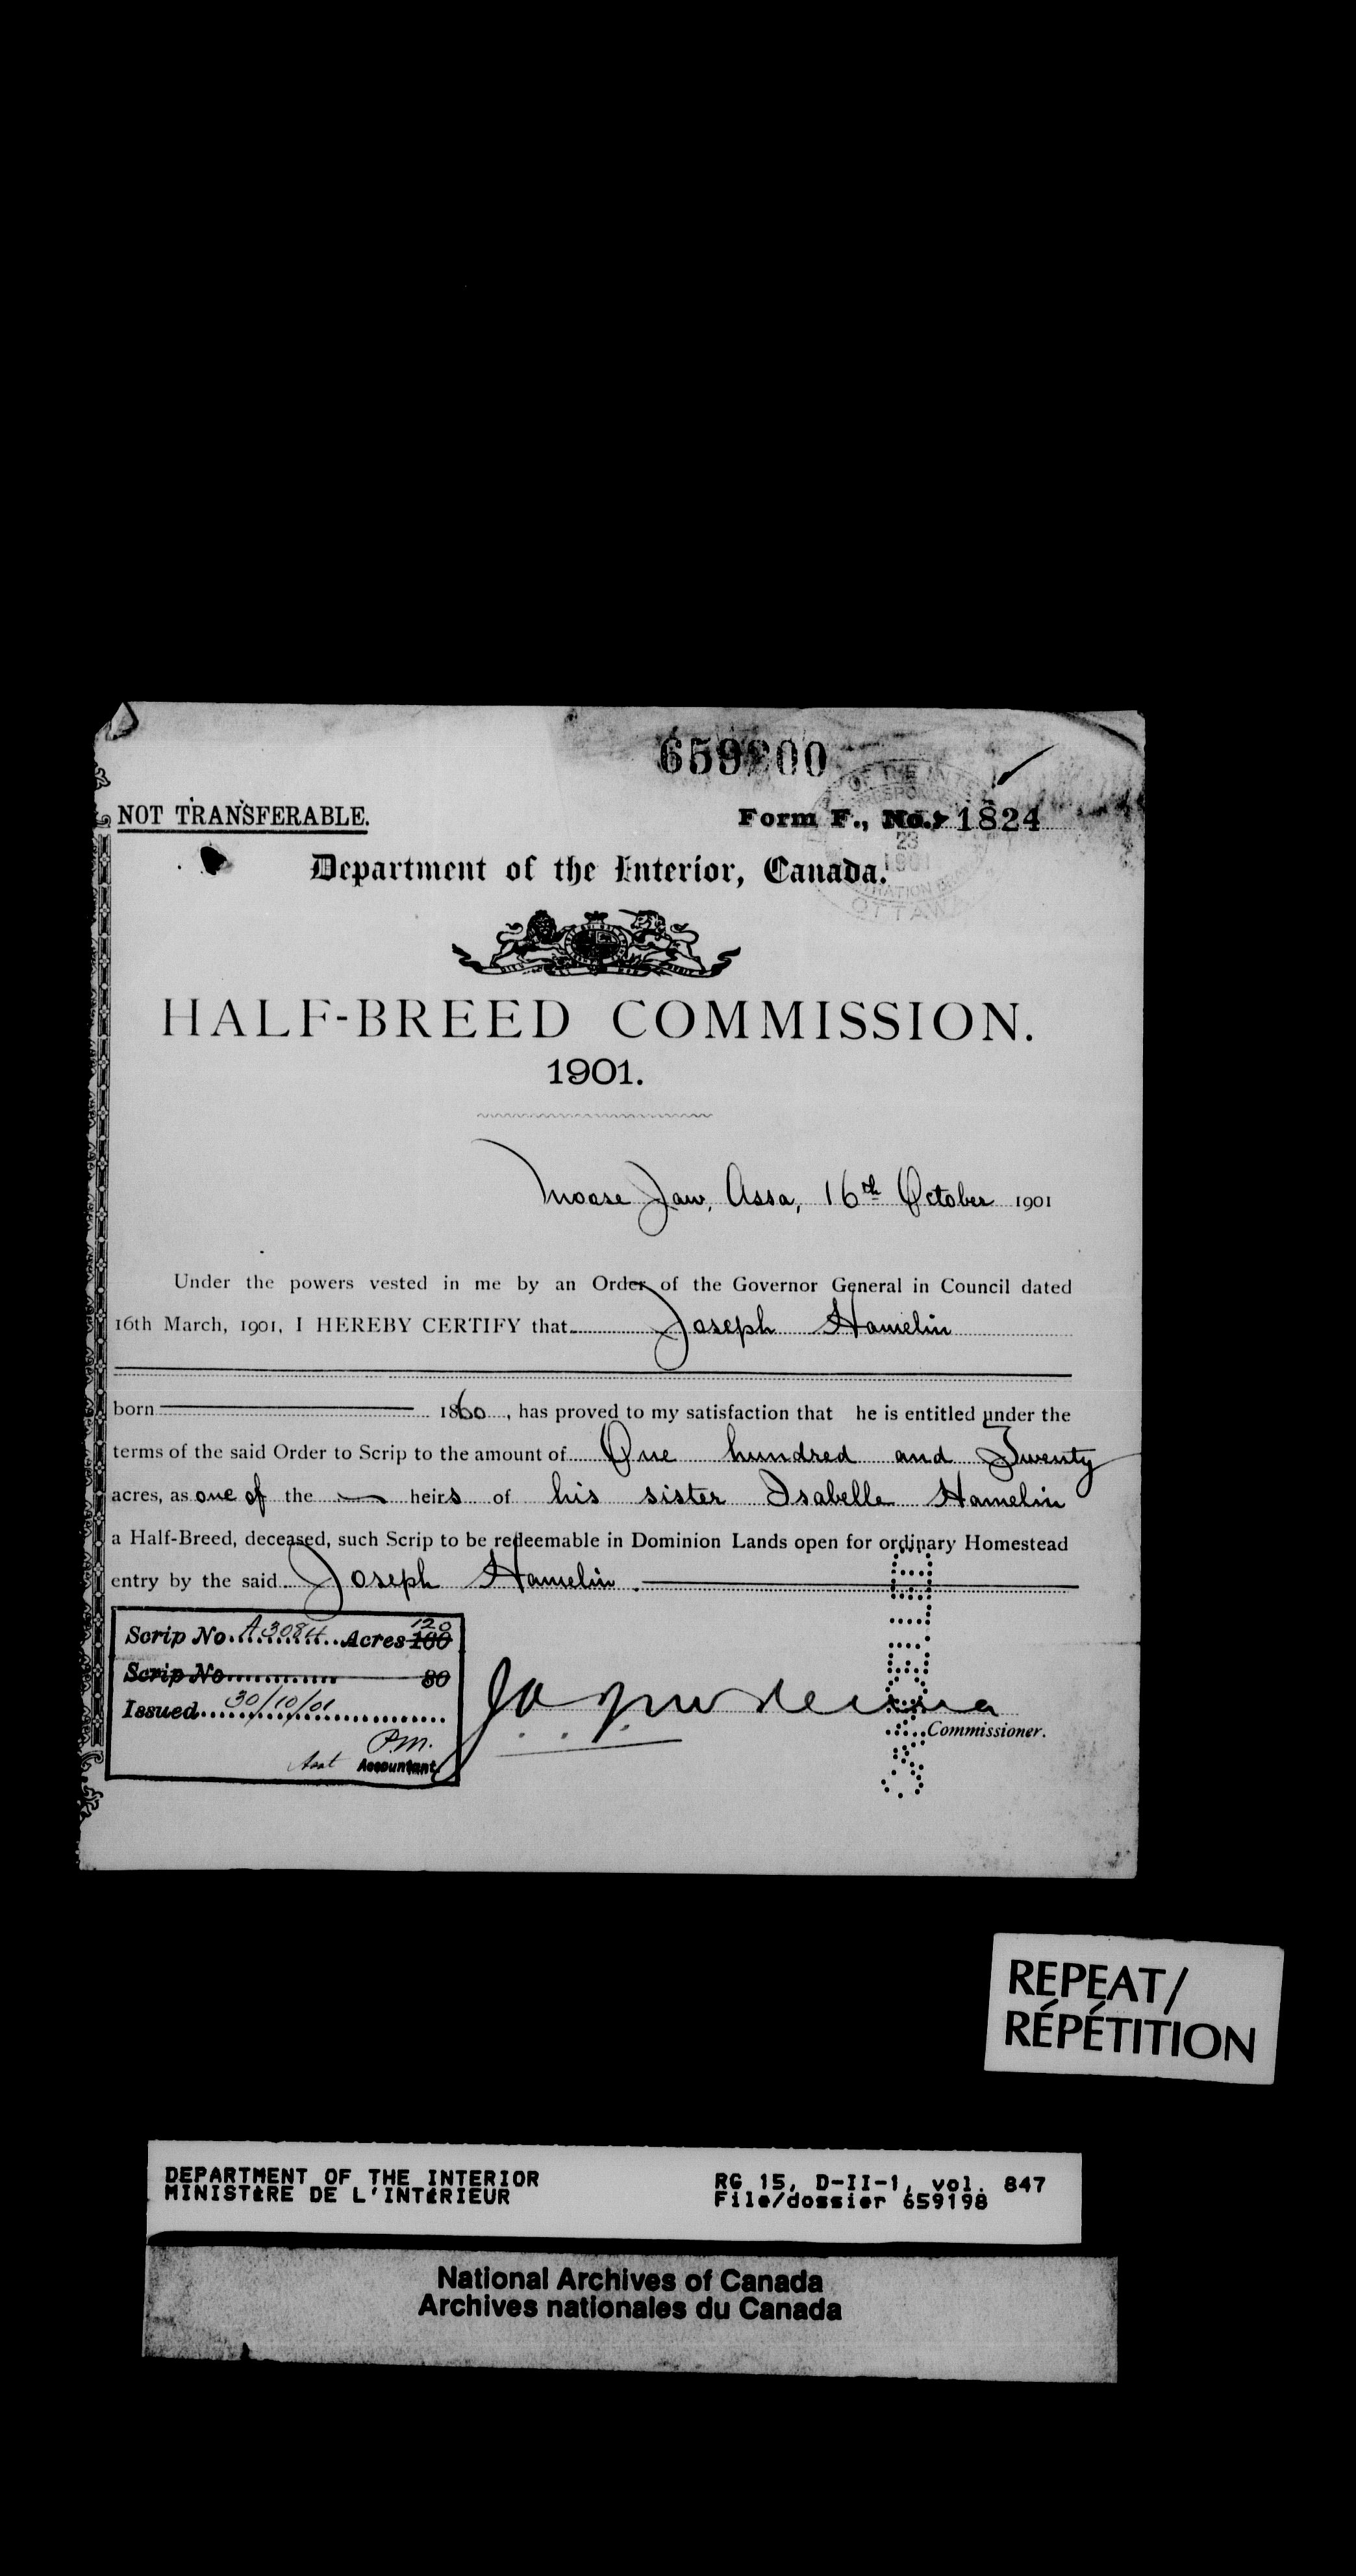 659200
NOT TRANSFERABLE.
Form F., No. 1824
23
1901
OTTAWA
Department of the Interior, Canada.
HALF-BREED COMMISSION.
1901.
Moose Jaw, Assa, 16th October 1901
Under the powers vested in me by an Order of the Governor General in Council dated
16th March, 1901, I HEREBY CERTIFY that Joseph Hamelin
born 1860, has proved to my satisfaction that he is entitled under the
terms of the said Order to Scrip to the amount of One hundred and Twenty
acres, as one of the heirs of his sister Isabelle Hamelin
a Half-Breed, deceased, such Scrip to be redeemable in Dominion Lands open for ordinary Homestead
entry by the said Joseph Hamelin.
Scrip No. A3084 Acres 160 120
Scrip No. 80
Issued 30/10/01
P.M.
Asst Accountant
Commissioner.
REPEAT/
RÉPÉTITION
DEPARTMENT OF THE INTERIOR
MINISTÈRE DE L'INTÉRIEUR
RG 15, D-II-1, vol. 847
File/dossier 659198
National Archives of Canada
Archives nationales du Canada